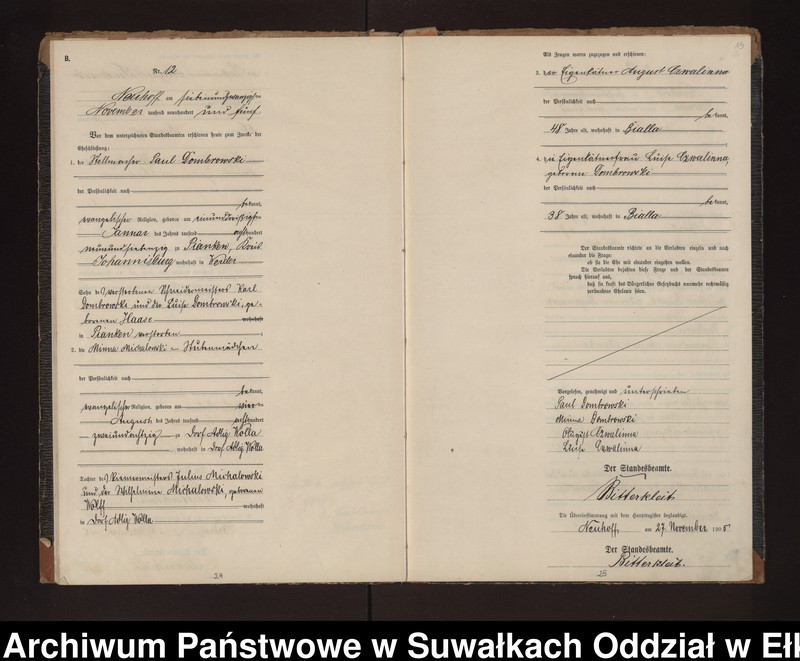 B.
Nr. 12
Neuhoff am siebenundzwanzigsten
November tausend neunhundert und fünf
Vor dem unterzeichneten Standesbeamten erschienen heute zum Zwecke der
Eheschließung:
1. der Stellmacher Paul Dombrowski
der Persönlichkeit nach
bekannt,
evangelischer Religion, geboren am einunddreißigsten
Januar des Jahres tausend achthundert
neunundsiebenzig zu Pianken, Kreis
Johannisburg wohnhaft in
Sohn des verstorbenen Schneidermeisters Karl
Dombrowski und der Luise Dombrowski, ge-
borenen Haase wohnhaft
in Pianken verstorben
2. die Minna Michalowski - Stubenmädchen
der Persönlichkeit nach
bekannt,
evangelischer Religion, geboren am vierten
August des Jahres tausend achthundert
zweiundachtzig zu Dorf Adlig Wolla
wohnhaft in Dorf Adlig Wolla
Tochter des Riemermeisters Julius Michalowski
und der Wilhelmine Michalowski, geborenen
Wolff wohnhaft
in Dorf Adlig Wolla
24
Als Zeugen waren zugezogen und erschienen:
3. der Eigenkätner August Czwalinna
der Persönlichkeit nach
bekannt,
48 Jahre alt, wohnhaft in Bialla
4. die Eigenkätnerfrau Luise Czwalinna
geborene Dombrowski
der Persönlichkeit nach
bekannt,
38 Jahre alt, wohnhaft in Bialla
Der Standesbeamte richtete an die Verlobten einzeln und nach
einander die Frage:
ob sie die Ehe mit einander eingehen wollen.
Die Verlobten bejahten diese Frage und der Standesbeamte
sprach hierauf aus,
daß sie kraft des Bürgerlichen Gesetzbuchs nunmehr rechtmäßig
verbundene Eheleute seien.
Vorgelesen, genehmigt und unterschrieben
Paul Dombrowski
Minna Dombrowski
August Czwalinna
Luise Czwalinna
Der Standesbeamte.
Bitterkleit
Die Übereinstimmung mit dem Hauptregister beglaubigt.
Neuhoff, am 27. November 1905
Der Standesbeamte.
Bitterkleit.
25
Archiwum Państwowe w Suwałkach Oddział w Ełk